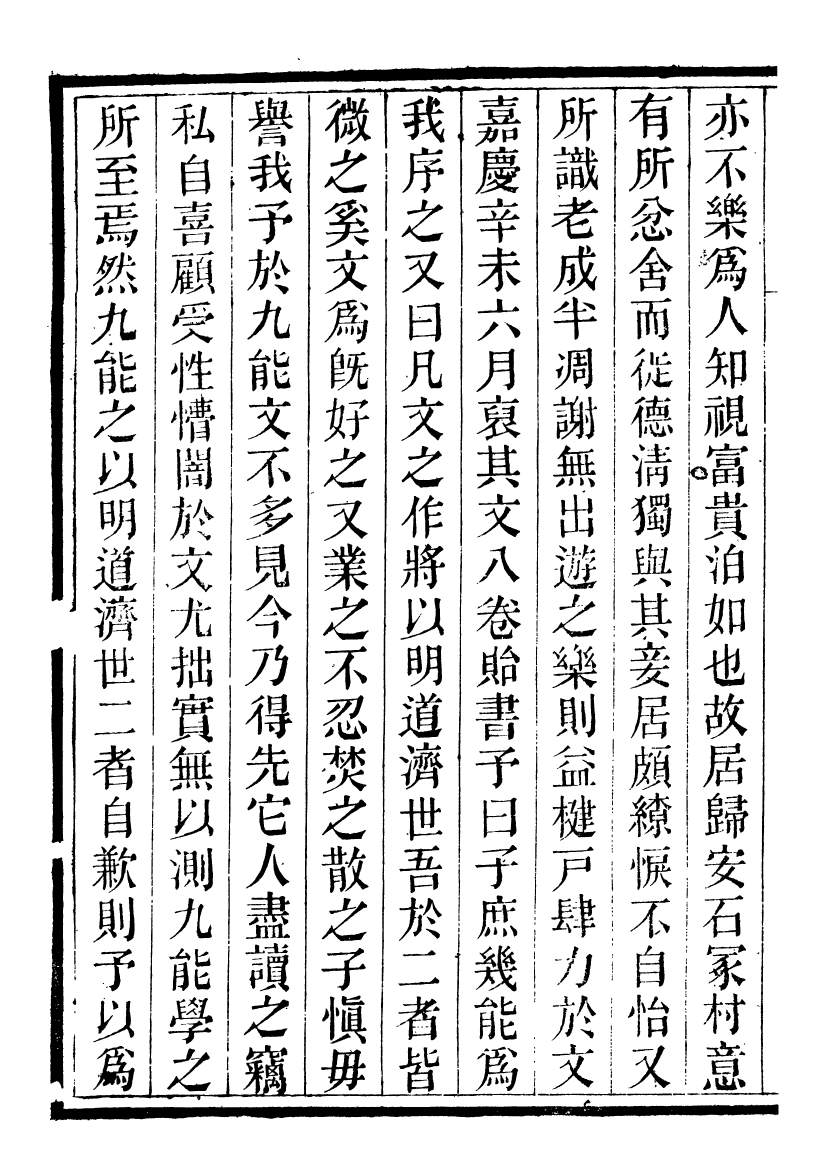 亦不樂爲人知視富貴泊如也故居歸安石冢村意
有所忿舍而徙德淸獨與其妾居頗繚悷不自怡又
所識老成半凋謝無出遊之樂則益楗戸肆力於文
嘉慶辛未六月裒其文八卷貽書予曰子庶幾能爲
我序之又曰凡文之作將以明道濟世吾於二者皆
微之奚文爲旣好之又業之不忍焚之散之子愼毋
譽我予於九能文不多見今乃得先它人盡讀之竊
私自喜顧受性懵闇於文尤拙實無以測九能學之
所至焉然九能之以明道濟世二者自歉則予以爲